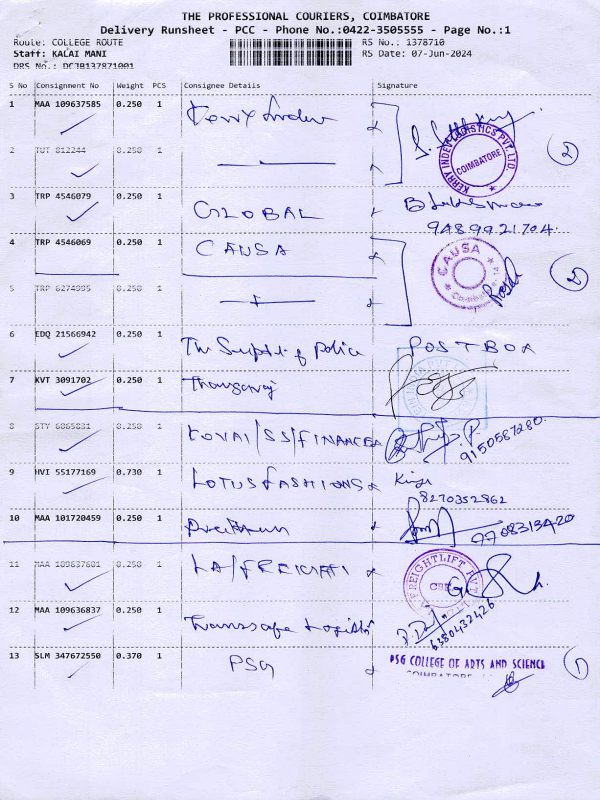 THE PROFESSIONAL COURIERS, COIMBATORE
Delivery Runsheet - PCC - Phone No.:0422-3505555 - Page No.:1
Route: COLLEGE ROUTE RS No.: 1378710
Staff: KALAI MANI RS Date: 07-Jun-2024
DRS No.: DCJB137871001
S No Consignment No Weight PCS Consignee Details Signature
1 MAA 109637585 0.250 1
KERRY INDEV LOGISTICS PVT. LTD. COIMBATORE
2
2 TUT 812244 0.250 1
3 TRP 4546079 0.250 1 GLOBAL
9489921704.
4 TRP 4546069 0.250 1 CAUSA
CAUSA
2
5 TRP 6274995 0.250 1
6 EDQ 21566942 0.250 1 The Supdt of Police POST BOX
7 KVT 3091702 0.250 1 Thangaraj
8 STY 6865831 0.250 1 KOVAI/SS/FINANCE
9150587280.
9 HVI 55177169 0.730 1 LOTUS FASHIONS
8270352862
10 MAA 101720459 0.250 1
7708313420
11 MAA 109637601 0.250 1
FREIGHTLIFT PVT
12 MAA 109636837 0.250 1 Transsafe Logistic
6380432426
13 SLM 347672550 0.370 1 PSG
PSG COLLEGE OF ARTS AND SCIENCE
COIMBATORE
1